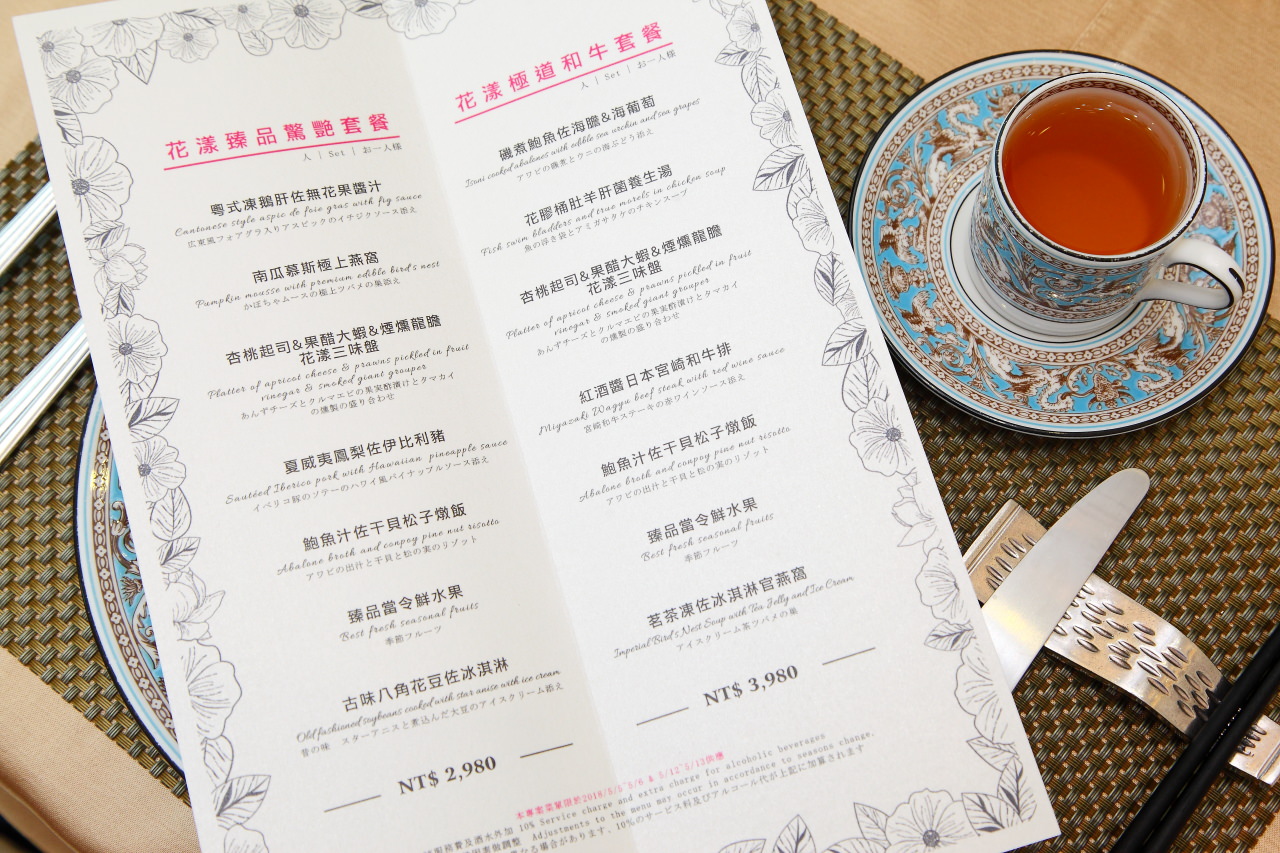 花漾臻品驚艷套餐
人 | Set | お一人樣
粵式凍鵝肝佐無花果醬汁
Cantonese style aspic de foie gras with fig sauce
広東風フォアグラ入りアスピックのイチジクソース添え
南瓜慕斯極上燕窩
Pumpkin mousse with premium edible bird's nest
かぼちゃムースの極上ツバメの巣添え
杏桃起司&果醋大蝦&煙燻龍膽
花漾三味盤
Platter of apricot cheese & prawns pickled in fruit
vinegar & smoked giant grouper
あんずチーズとクルマエビの果実酢漬けとタマカイ
の燻製の盛り合わせ
夏威夷鳳梨佐伊比利豬
Sautéed Iberico pork with Hawaiian pineapple sauce
イベリコ豚のソテーのハワイ風パイナップルソース添え
鮑魚汁佐干貝松子燉飯
Abalone broth and conpoy pine nut risotto
アワビの出汁と干貝と松の実のリゾット
臻品當令鮮水果
Best fresh seasonal fruits
季節フルーツ
古味八角花豆佐冰淇淋
Old fashioned soybeans cooked with star anise with ice cream
昔の味 スターアニスと煮込んだ大豆のアイスクリーム添え
NT$ 2,980
花漾極道和牛套餐
人 | Set | お一人樣
磯煮鮑魚佐海膽&海葡萄
Isoni cooked abalones with edible sea urchin and sea grapes
アワビの磯煮とウニの海ぶどう添え
花膠桶肚羊肝菌養生湯
Fish swim bladders and true morels in chicken soup
魚の浮き袋とアミガサタケのチキンスープ
杏桃起司&果醋大蝦&煙燻龍膽
花漾三味盤
Platter of apricot cheese & prawns pickled in fruit
vinegar & smoked giant grouper
あんずチーズとクルマエビの果実酢漬けとタマカイ
の燻製の盛り合わせ
紅酒醬日本宮崎和牛排
Miyazaki Wagyu beef steak with red wine sauce
宮崎和牛ステーキの赤ワインソース添え
鮑魚汁佐干貝松子燉飯
Abalone broth and conpoy pine nut risotto
アワビの出汁と干貝と松の実のリゾット
臻品當令鮮水果
Best fresh seasonal fruits
季節フルーツ
茗茶凍佐冰淇淋官燕窩
Imperial Bird's Nest Soup with Tea Jelly and Ice Cream
アイスクリーム茶ツバメの巣
NT$ 3,980
本專案菜單限於2018/5/5~5/6 & 5/12~5/13供應
服務費及酒水外加 10% Service charge and extra charge for alcoholic beverages
做調整 Adjustments to the menu may occur in accordance to seasons change.
なる場合があります、10%のサービス料及びアルコール代が上記に加算されます